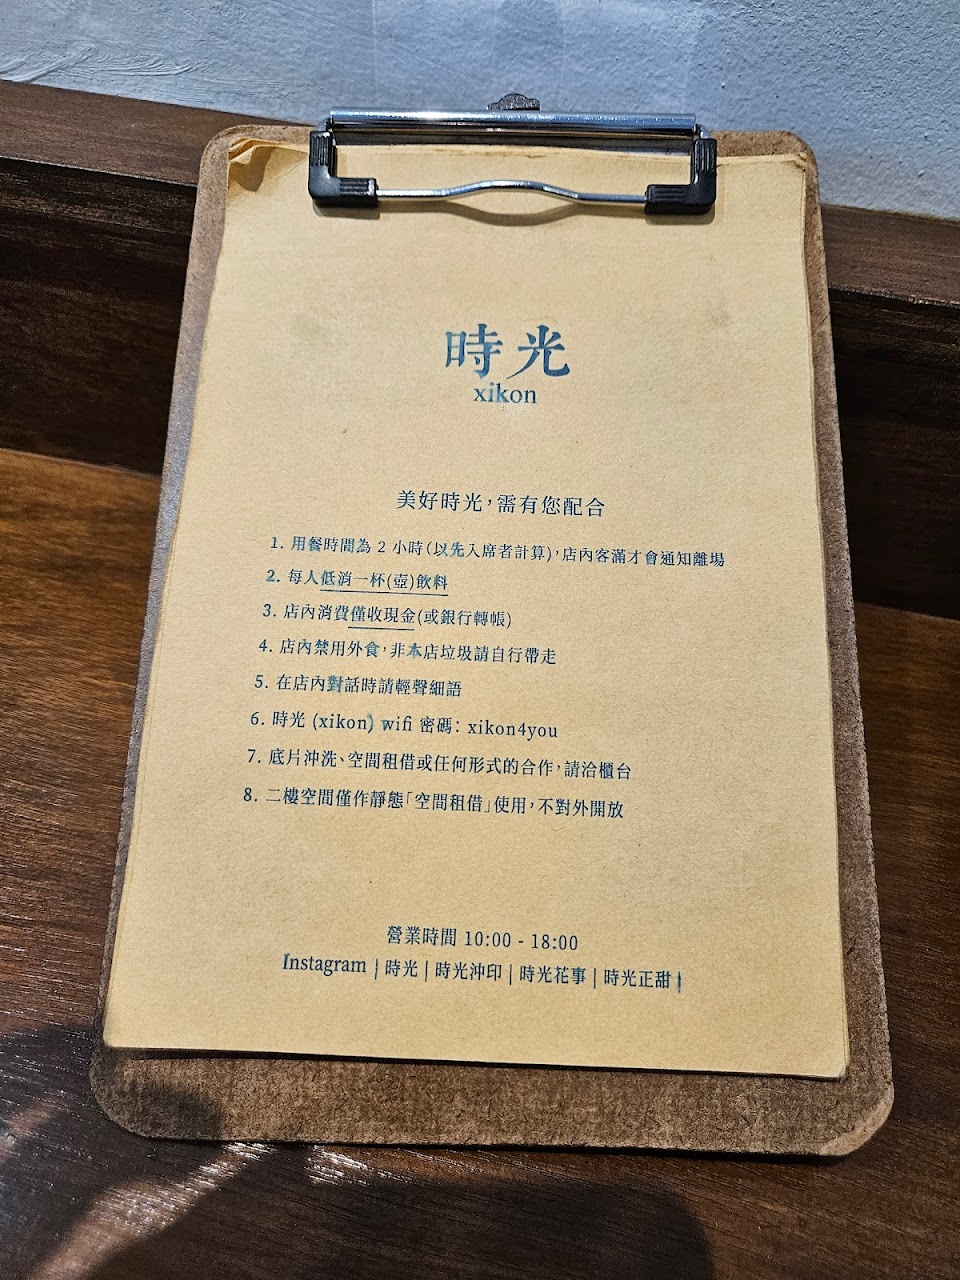 時光
xikon
美好時光，需有您配合
1. 用餐時間為 2 小時(以先入席者計算)，店內客滿才會通知離場
2. 每人低消一杯(壺)飲料
3. 店內消費僅收現金(或銀行轉帳)
4. 店內禁用外食，非本店垃圾請自行帶走
5. 在店內對話時請輕聲細語
6. 時光 (xikon) wifi 密碼: xikon4you
7. 底片沖洗、空間租借或任何形式的合作，請洽櫃台
8. 二樓空間僅作靜態「空間租借」使用，不對外開放
營業時間 10:00 - 18:00
Instagram | 時光 | 時光沖印 | 時光花事 | 時光正甜 |